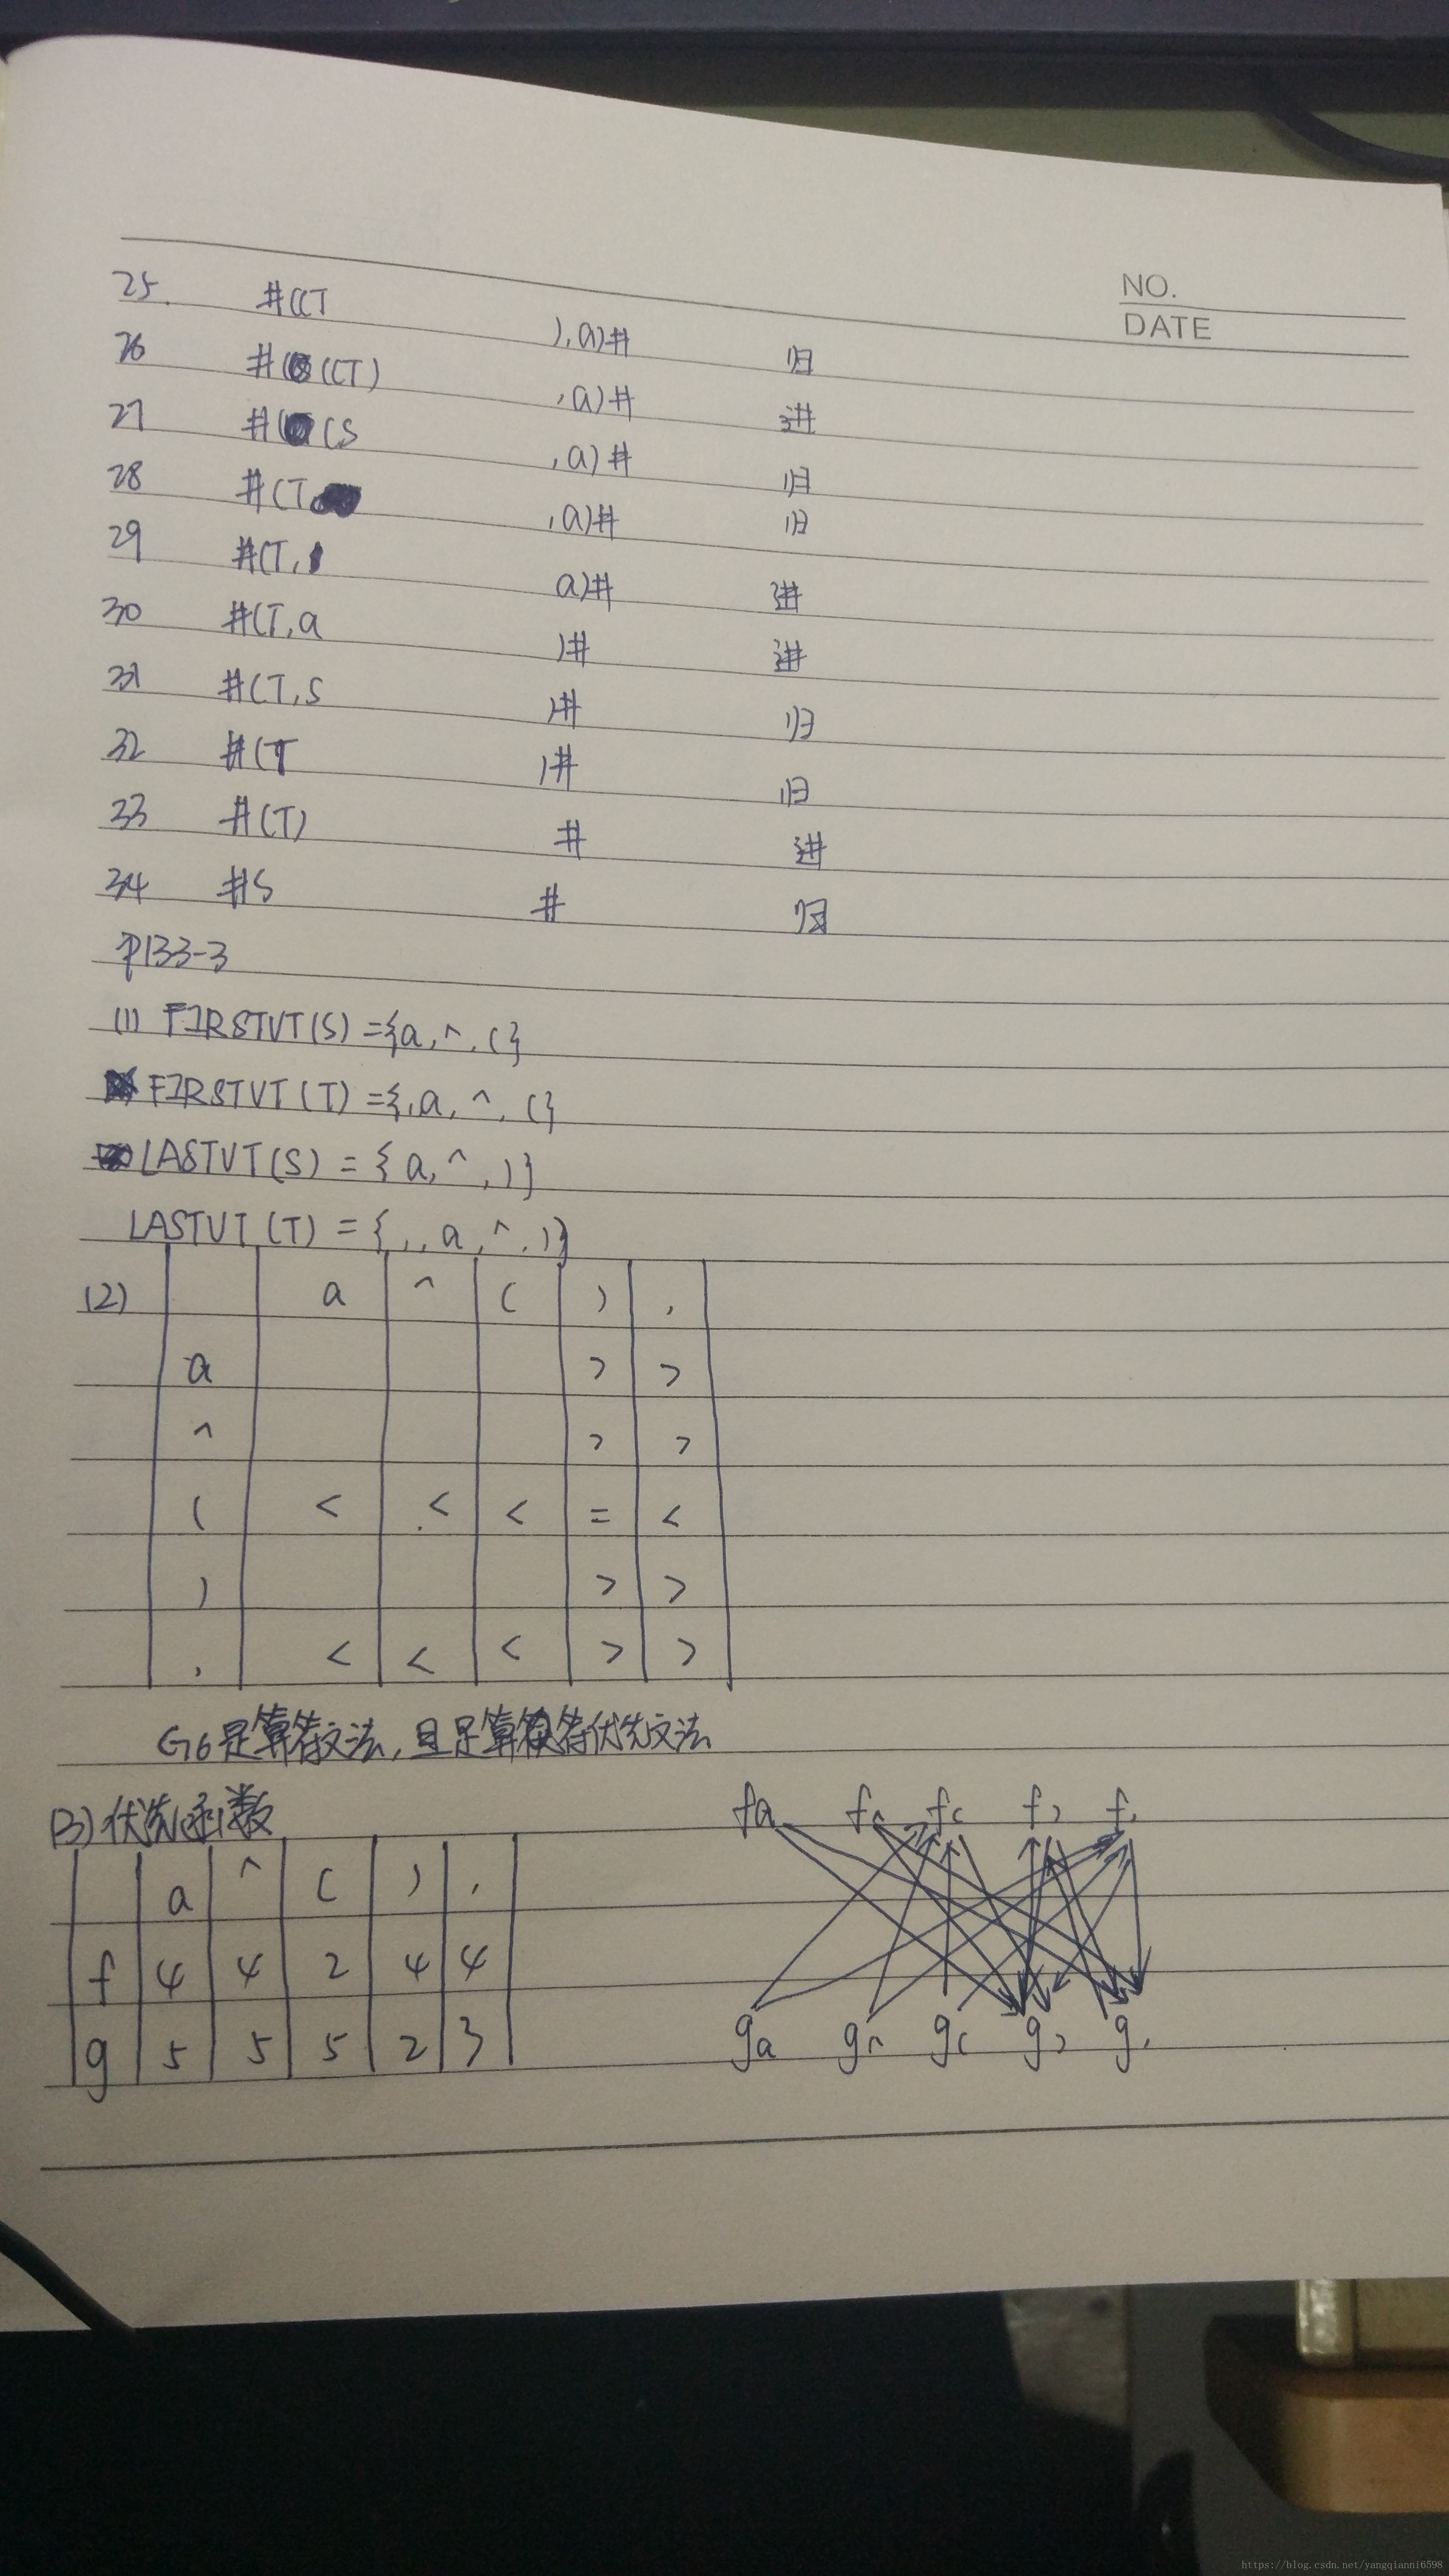 NO.
DATE
25. #((T ),a)# 归
26 #((T) ,a)# 进
27 #(S ,a)# 归
28 #(T ,a)# 归
29 #(T, a)# 进
30 #(T,a )# 进
31 #(T,S )# 归
32 #(T )# 归
33 #(T) # 进
34 #S # 归
P133-3
(1) FIRSTVT(S)={a,^,(}
FIRSTVT(T)={,a,^,(}
LASTVT(S)={a,^,)}
LASTVT(T)={,,a,^,)}
(2) a ^ ( ) ,
a > >
^ > >
( < < < = <
) > >
, < < < > >
G6是算符文法,且是算符优先文法
(3)优先函数
fa f^ f( f) f,
a ^ ( ) ,
f 4 4 2 4 4
g 5 5 5 2 3
ga g^ g( g) g,
https://blog.csdn.net/yangqianni6598